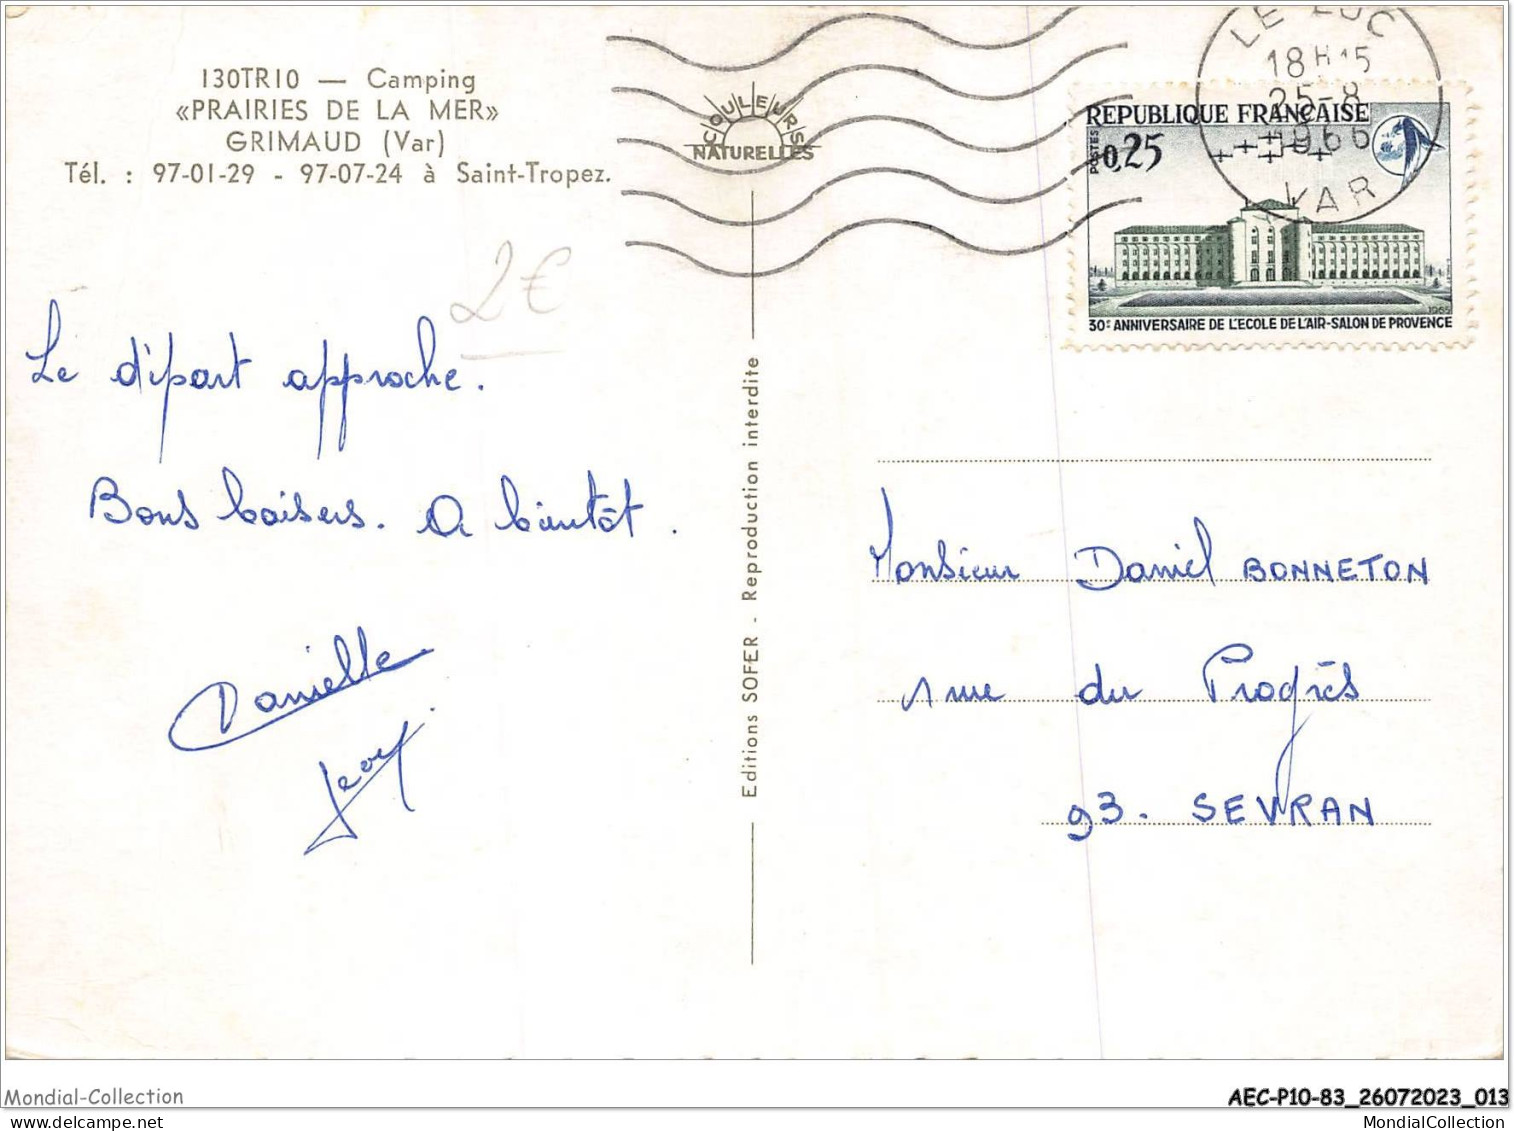 130TR10 — Camping
«PRAIRIES DE LA MER»
GRIMAUD (Var)
Tél. : 97-01-29 - 97-07-24 à Saint-Tropez.
COULEURS
NATURELLES
LE LUC
18H15
25-8
1966
VAR
REPUBLIQUE FRANÇAISE
POSTES
0,25
1965
30E ANNIVERSAIRE DE L'ECOLE DE L'AIR-SALON DE PROVENCE
2€
Le départ approche.
Bons baisers. A bientôt.
Danielle
Editions SOFER - Reproduction interdite
Monsieur Daniel BONNETON
1 rue du Progrès
93. SEVRAN
Mondial-Collection
AEC-P10-83_26072023_013
Mondial-Collection
MondialCollection